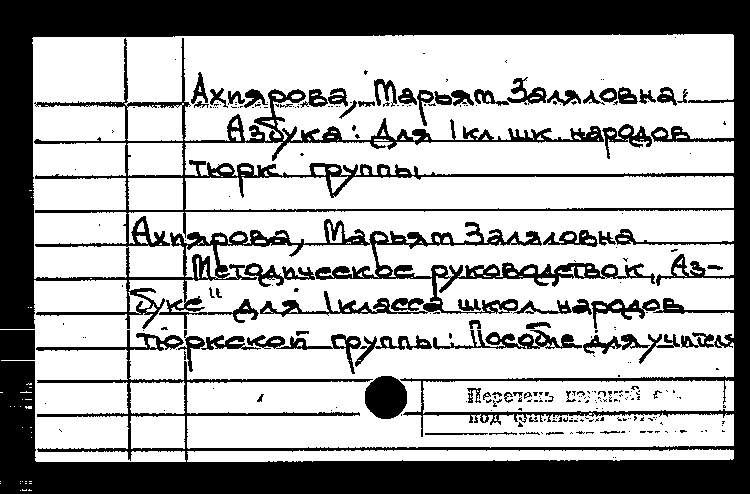 Ахиярова, Марьям Заляловна.
Азбука: Для 1 кл. шк. народов
тюрк. группы.
Ахиярова, Марьям Заляловна.
Методическое руководство к „Аз-
буке" для 1 класса школ народов
тюркской группы: Пособие для учителя
Перечень изданий см.
под фамилией автора